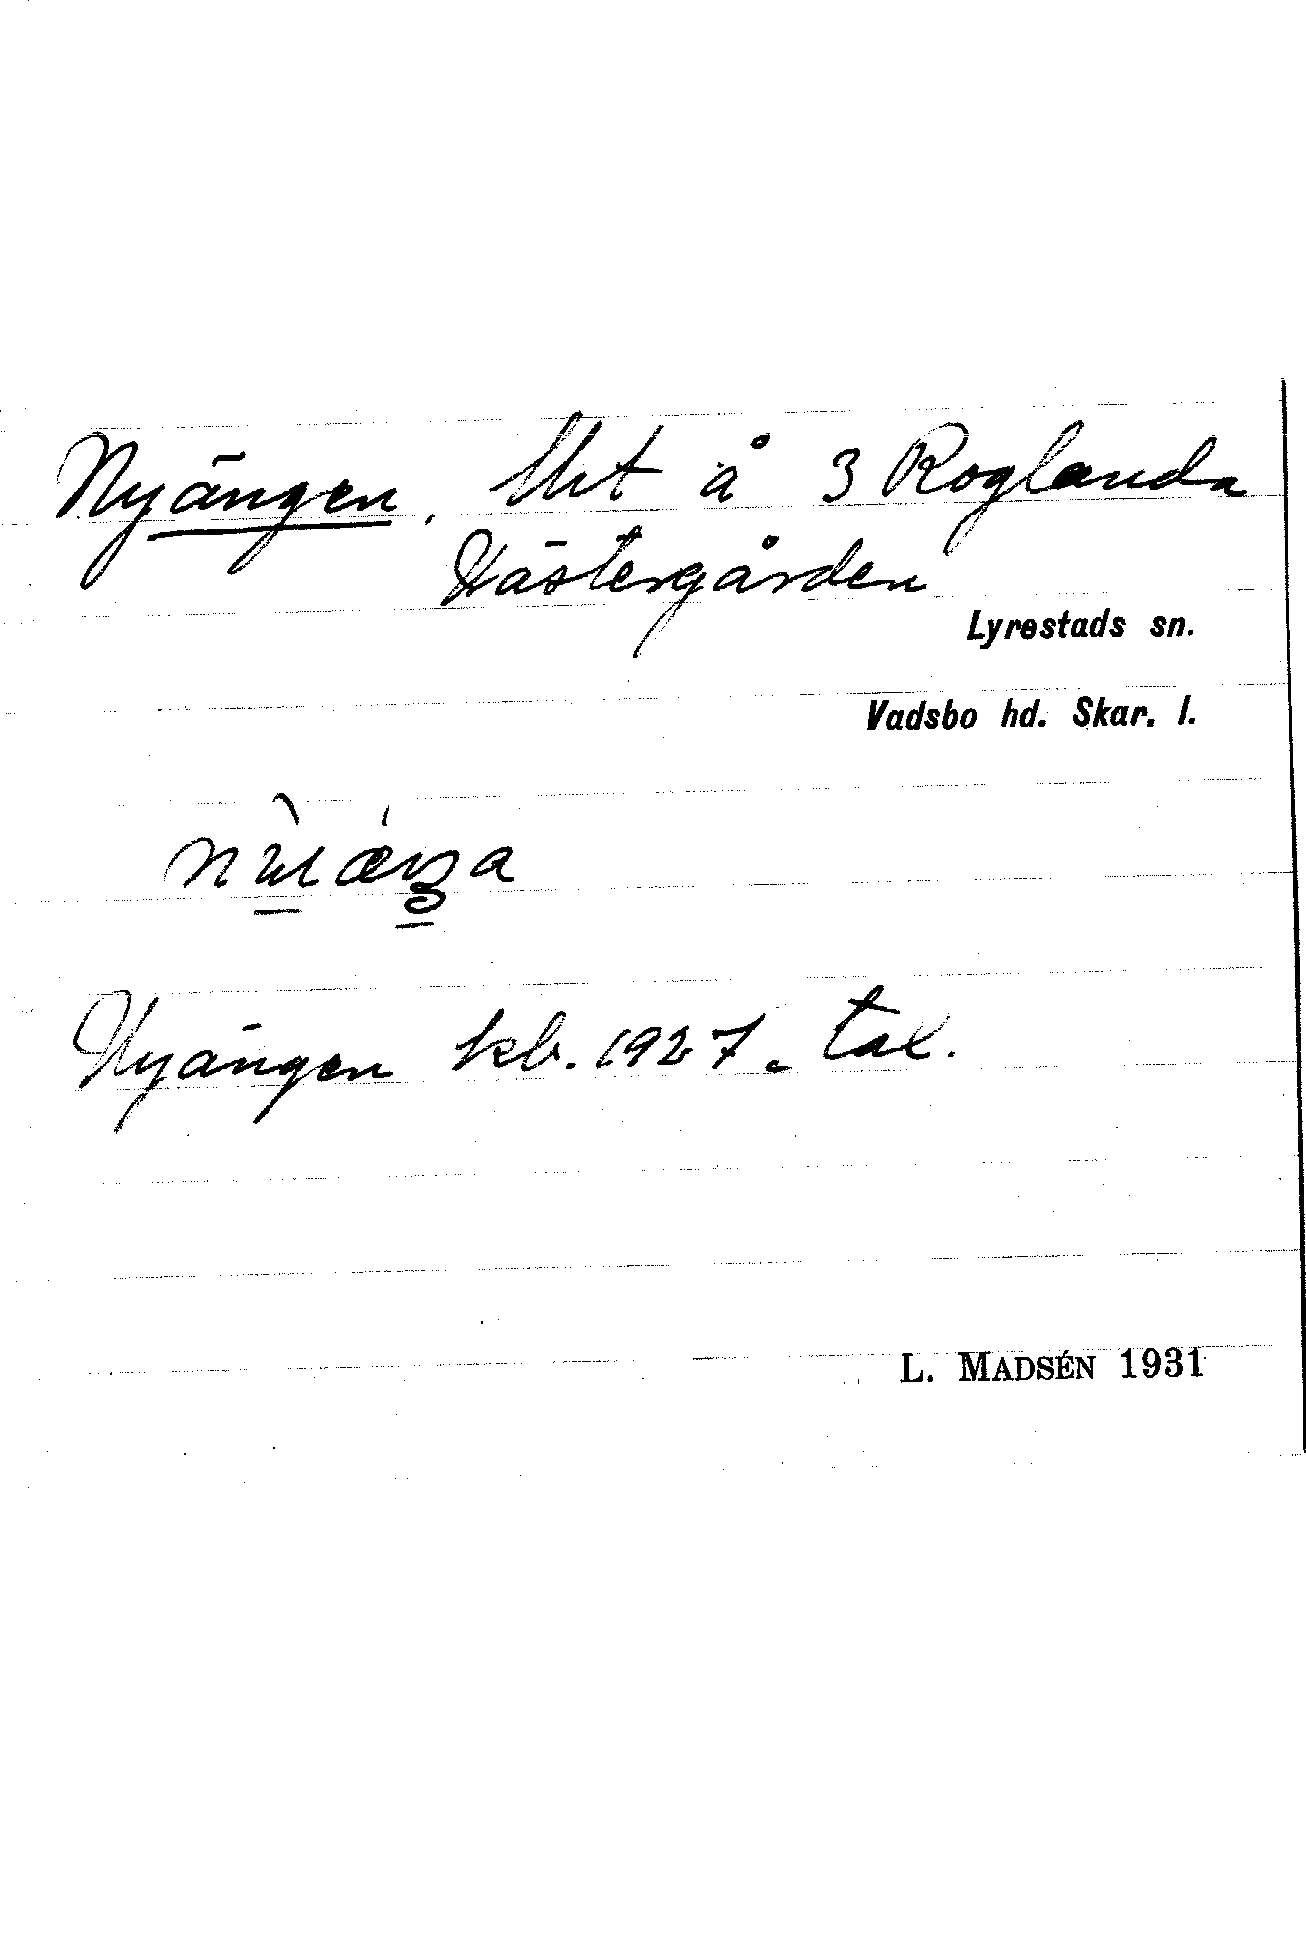 Nyängen. Uht å 3 Roglanda
Västergården
Lyrestads sn.
Vadsbo hd. Skar. l.
Nyängen kb. 1927. tax.
L. MADSÉN 1931